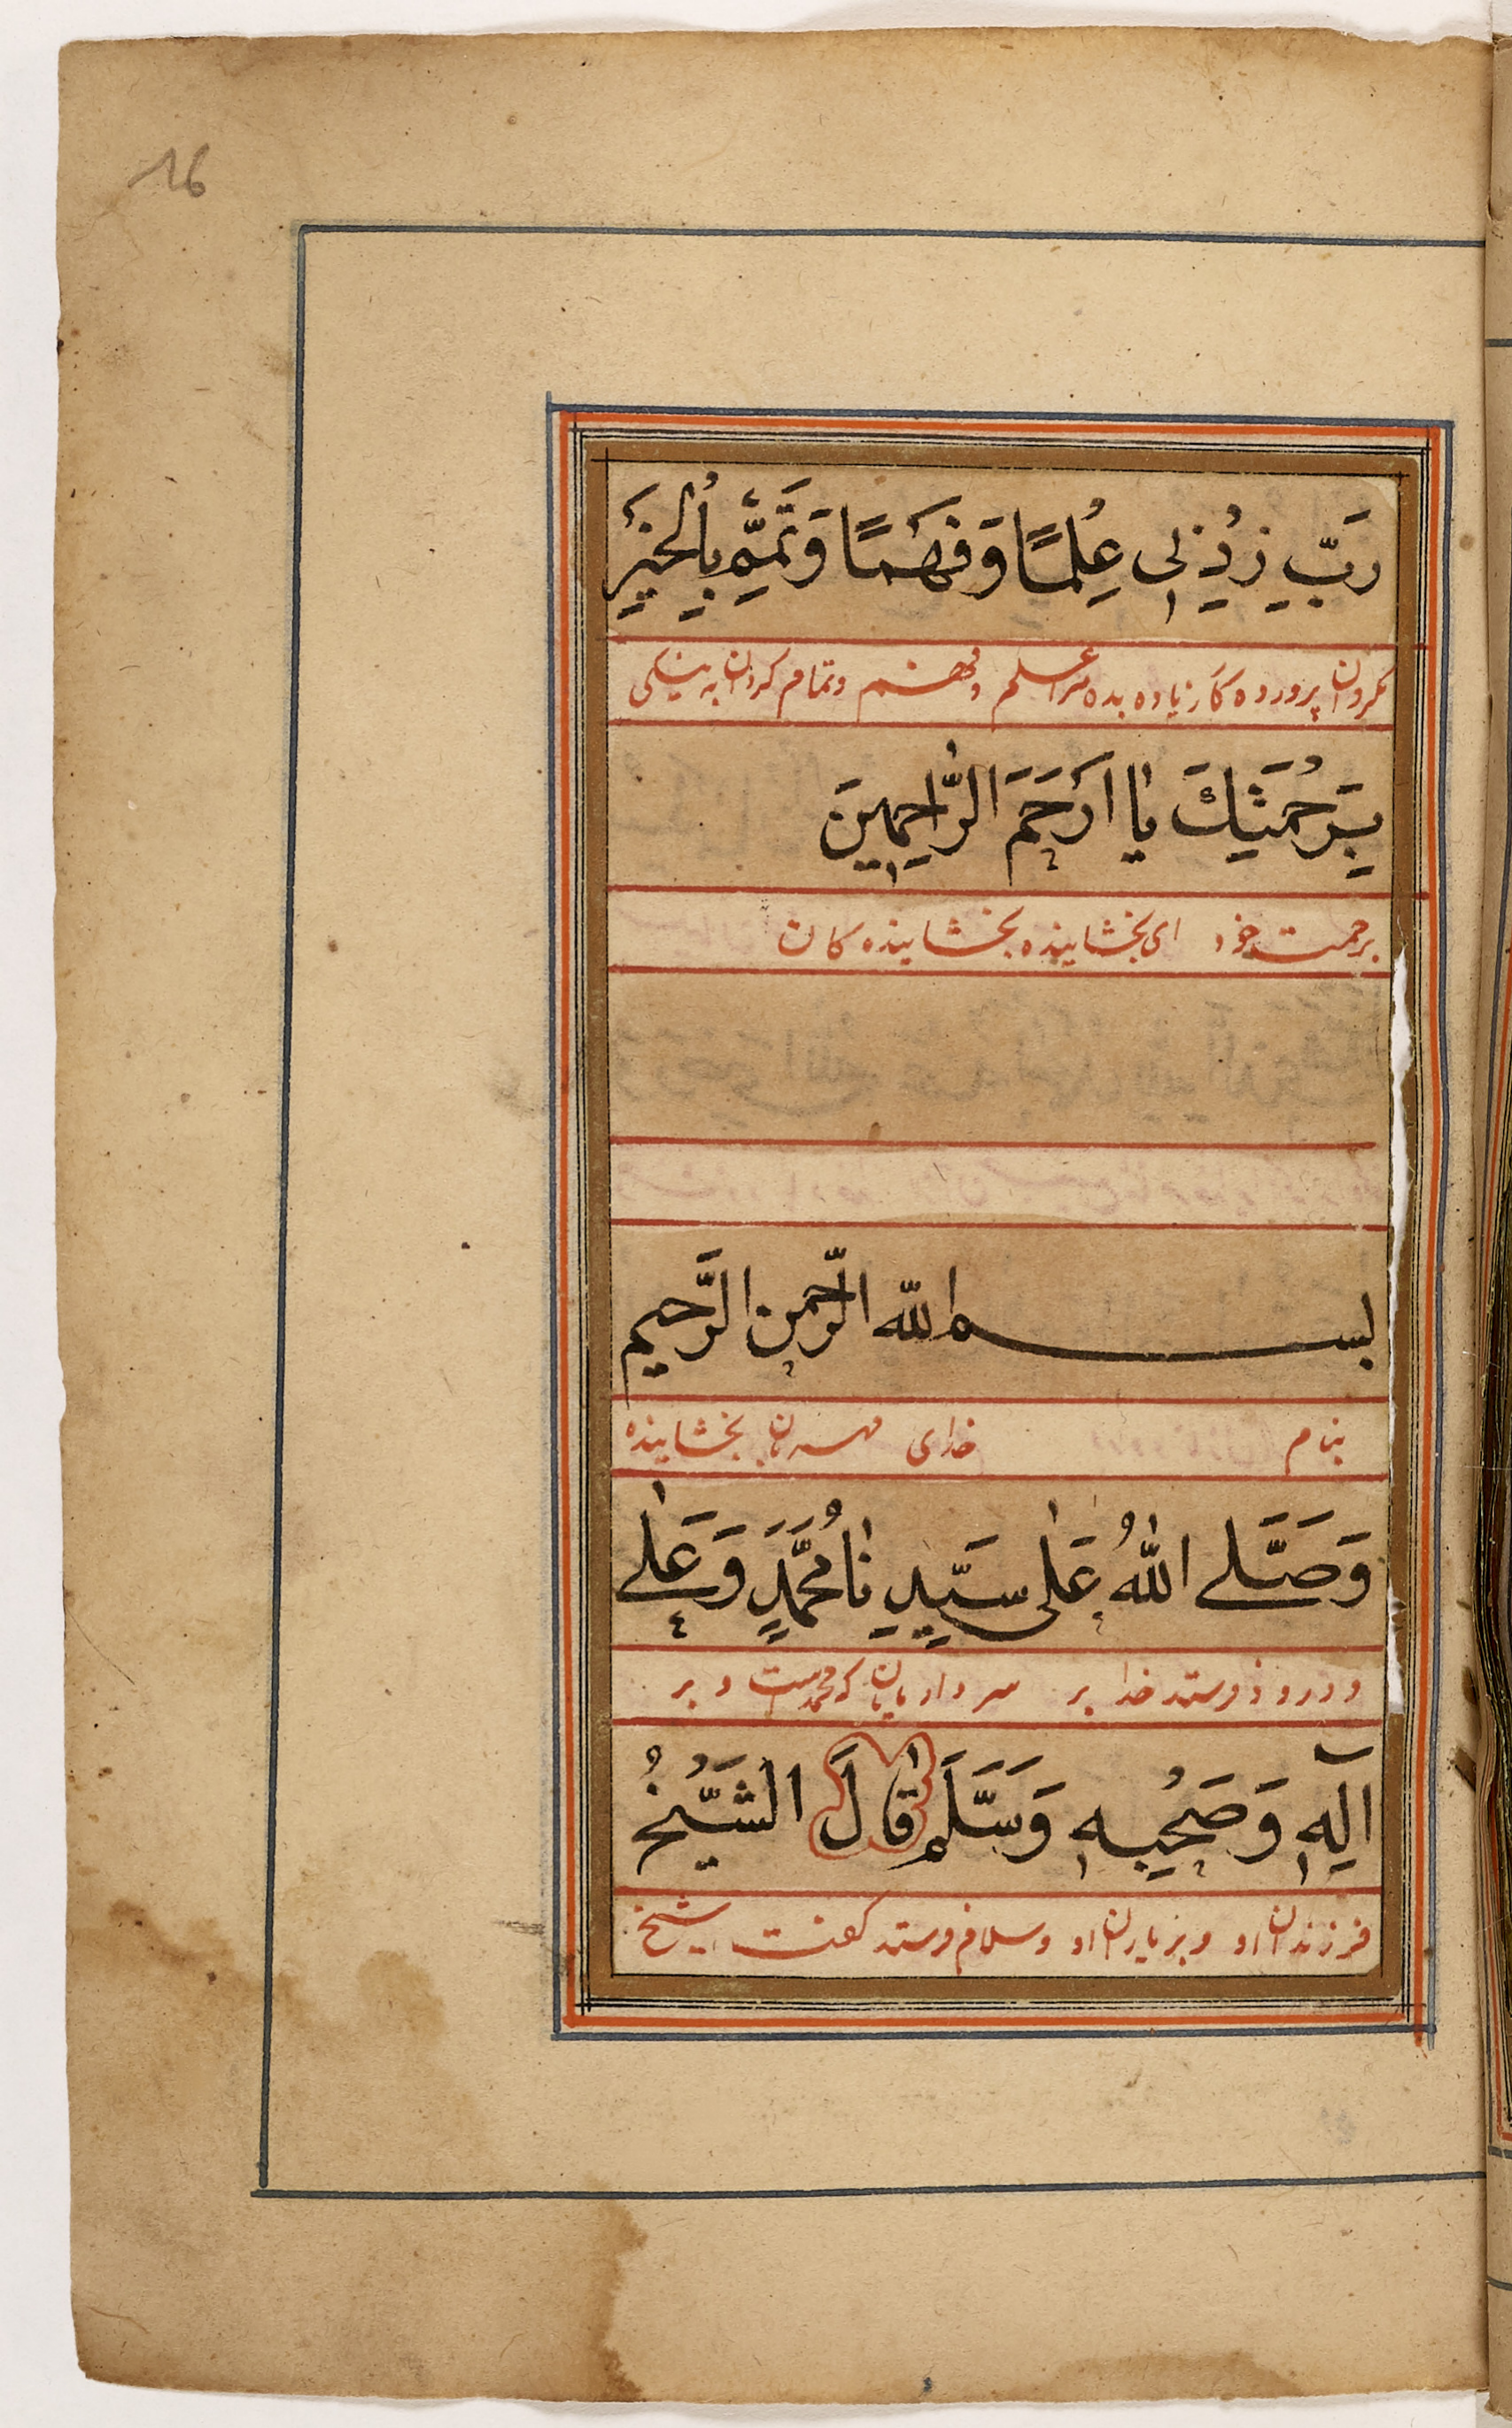 16
رَبِّ زِدْنِي عِلْمًا وَفَهْمًا وَتَمِّمْ بِالْخَيْرِ
پرورده كار زياده بده مرا علم و فهم و تمام كردان به نيكى
بِرَحْمَتِكَ يَا اَرْحَمَ الرَّاحِمِينَ
برحمت خود اى بخشاينده بخشاينده كان
بسم الله الرّحمن الرَّحيم
بنام خداى مهربان بخشاينده
وَصَلَّى اللهُ عَلَى سَيِّدِنَا مُحَمَّدٍ وَعَلَى
و درود فرستد خدا بر سردار مايان كه محمد است و بر
آلِهِ وَصَحْبِهِ وَسَلَّمَ قَالَ الشَّيْخُ
فرزندان او و بر ياران او و سلام فرستد كفت شيخ